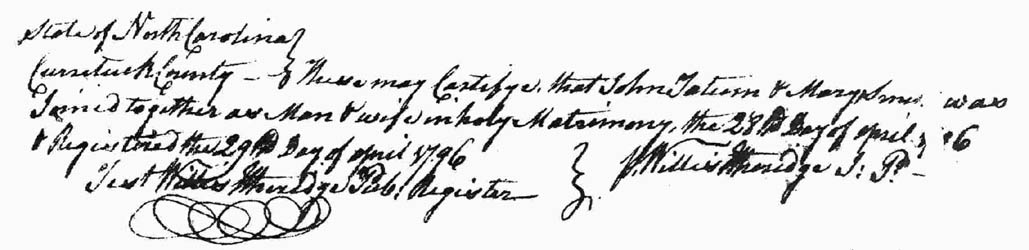 State of North Carolina }
Currituck County — } These may Certifye that John Tatum & Mary was
Joined together as Man & wife in holy Matrimony the 28th Day of april
& Registered the 29th Day of april 1796
Test Willis Etheredge Pub. Register } Willis Etheredge J: P—